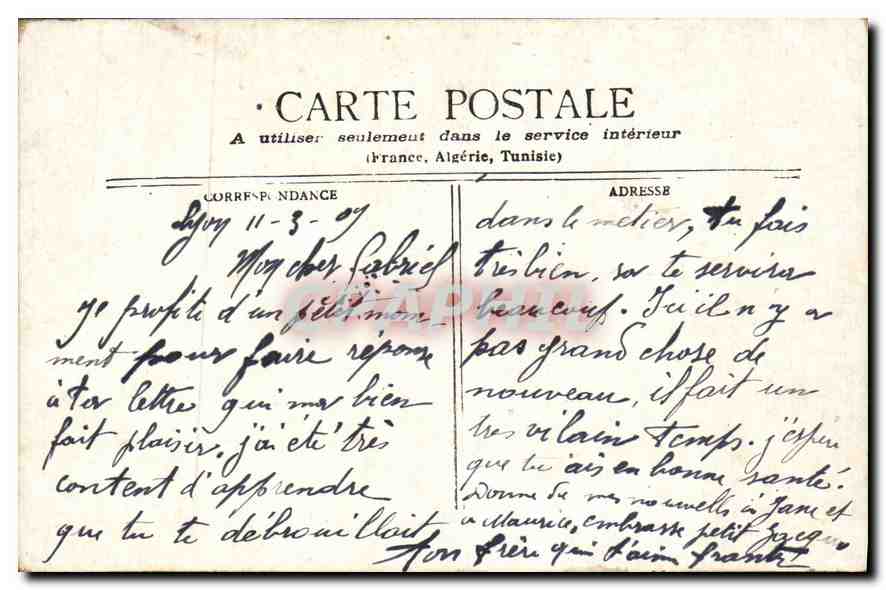 CARTE POSTALE
A utiliser seulement dans le service intérieur
(France, Algérie, Tunisie)
CORRESPONDANCE
Lyon 11-3-09
Mon cher Gabriel
Je profite d'un petit mom-
ment pour faire réponse
à ta lettre qui ma bien
fait plaisir, j'ai été très
content d'apprendre
que tu te débrouillait
ADRESSE
dans le métier, tu fais
très bien, sa te servira
beaucouf. Ici il n'y a
pas grand chose de
nouveau, il fait un
très vilain temps. j'espère
que tu ais en bonne santé.
Donne de mes nouvells à Jane et
a Maurice, embrasse petit
ton frère qui t'aime Frantz
CPAPHIL